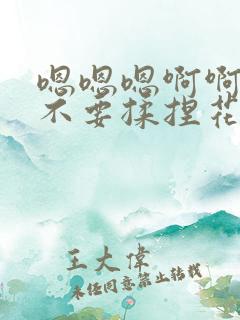 嗯嗯嗯啊啊
不要揉捏花
王大伟
未经同意禁止转载